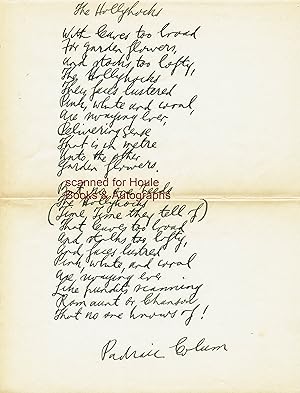 The Hollyhocks
With leaves too broad
For garden flowers,
And stocks too lofty,
The Hollyhocks
Their faces lustered
Pink, white and coral,
Are swaying ever,
Delivering sense
That is in metre
Unto the other
Garden flowers.
scanned for Houle
Books & Autographs
The Hollyhocks
(Time, Time they tell of)
That leaves too broad
And stalks too lofty,
And faces lustred
Pink, white, and coral
Are swaying ever
Like pundits scanning
Romaunt or Chanson
That no one knows of!
Padraic Colum